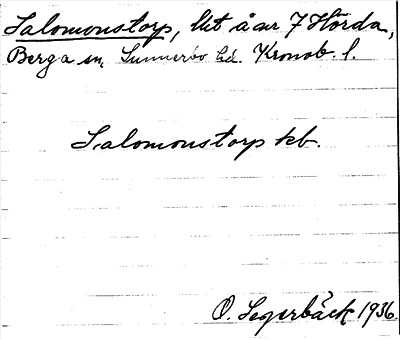 Salomonstorp, lht å avs 7 Hörda,
Berga sn, Sunnerbo hd. Kronob. l.
Salomonstorp kb.
O. Segerbäck 1936.